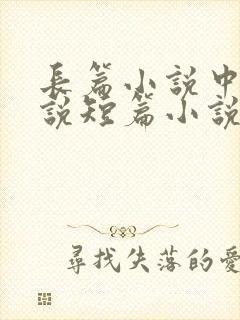 長篇小說中
說短篇小說
尋找失落的愛